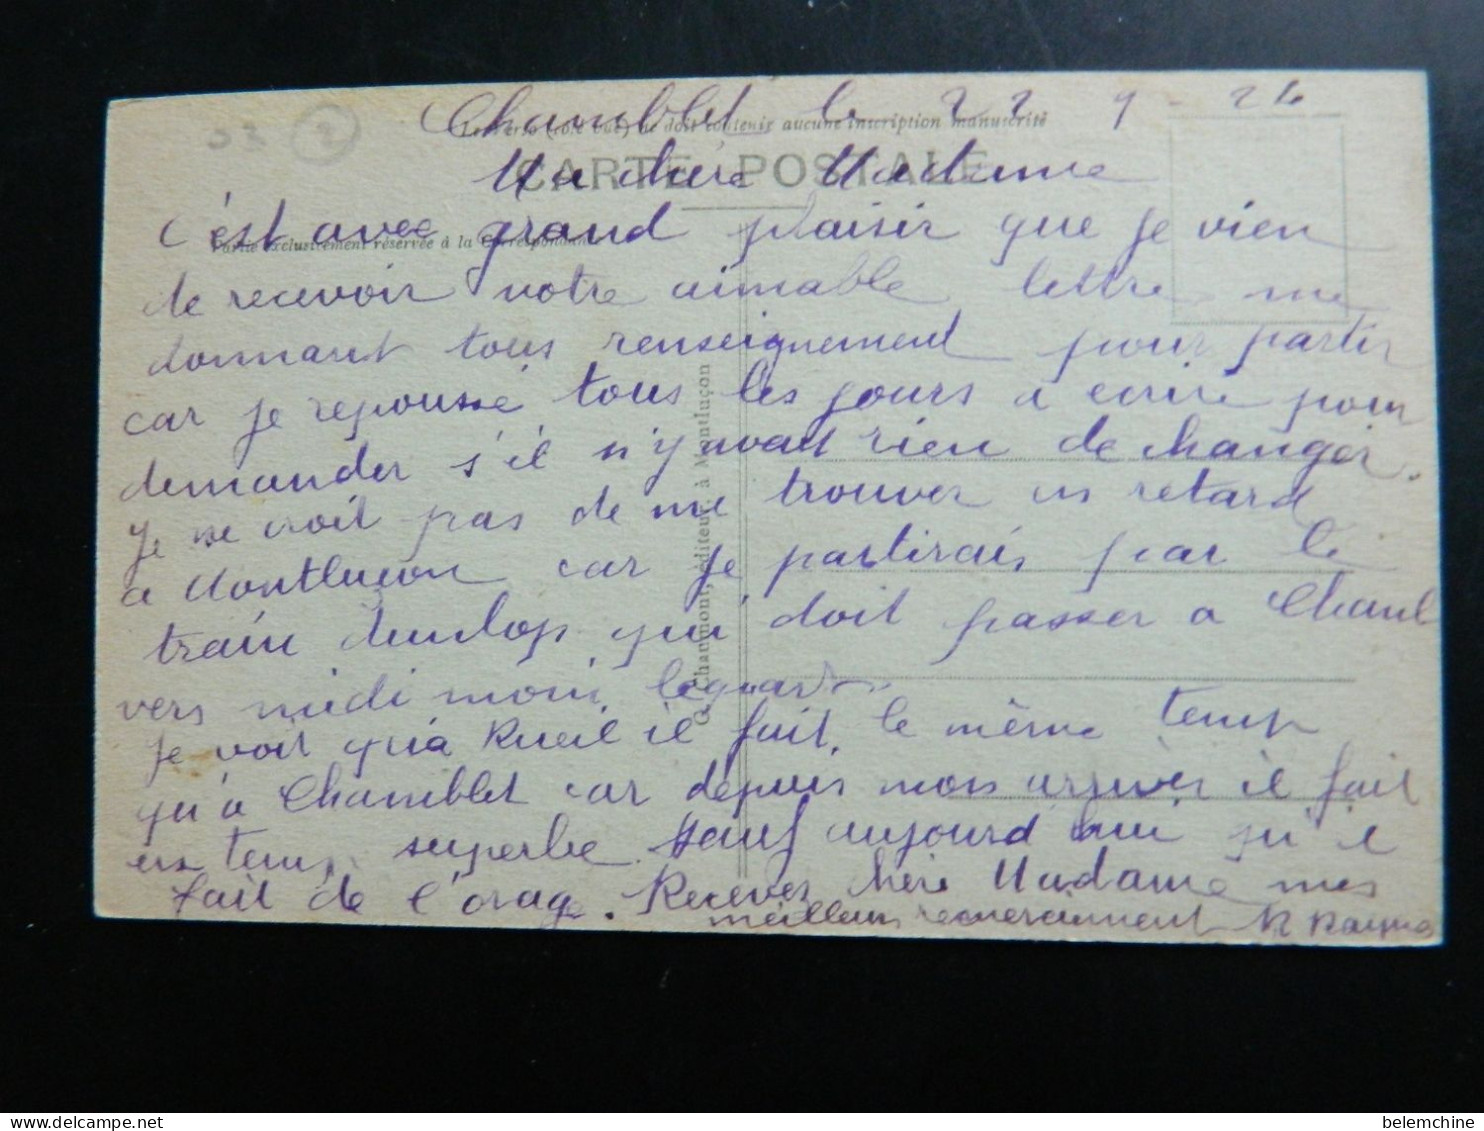 03 2
Chamblet le 22 9 - 26
Le verso (côté vue) ne doit contenir aucune inscription manuscrite
CARTE POSTALE
Ma chère Madame
Partie exclusivement réservée à la Correspondance
c'est avec grand plaisir que je vien
de recevoir votre aimable lettre me
donnant tous renseignement pour partir
car je repoussé tous les jours a ecrire pour
demander s'il n'y avait rien de changer.
Je ne croit pas de me trouver en retard
a Montluçon car je partirais par le
train dunlop qui doit passer a Chambl
vers midi moin le quart.
Je voit qu'a Rueil il fait le même temp
qu'a Chamblet car depuis mon arriver il fait
un temp superbe sauf aujourd hui qu'il
fait de l'orage. Recever chère Madame mes
meilleurs remerciement R Rayma
G. Chaumont, éditeur, à Montluçon
belemchine